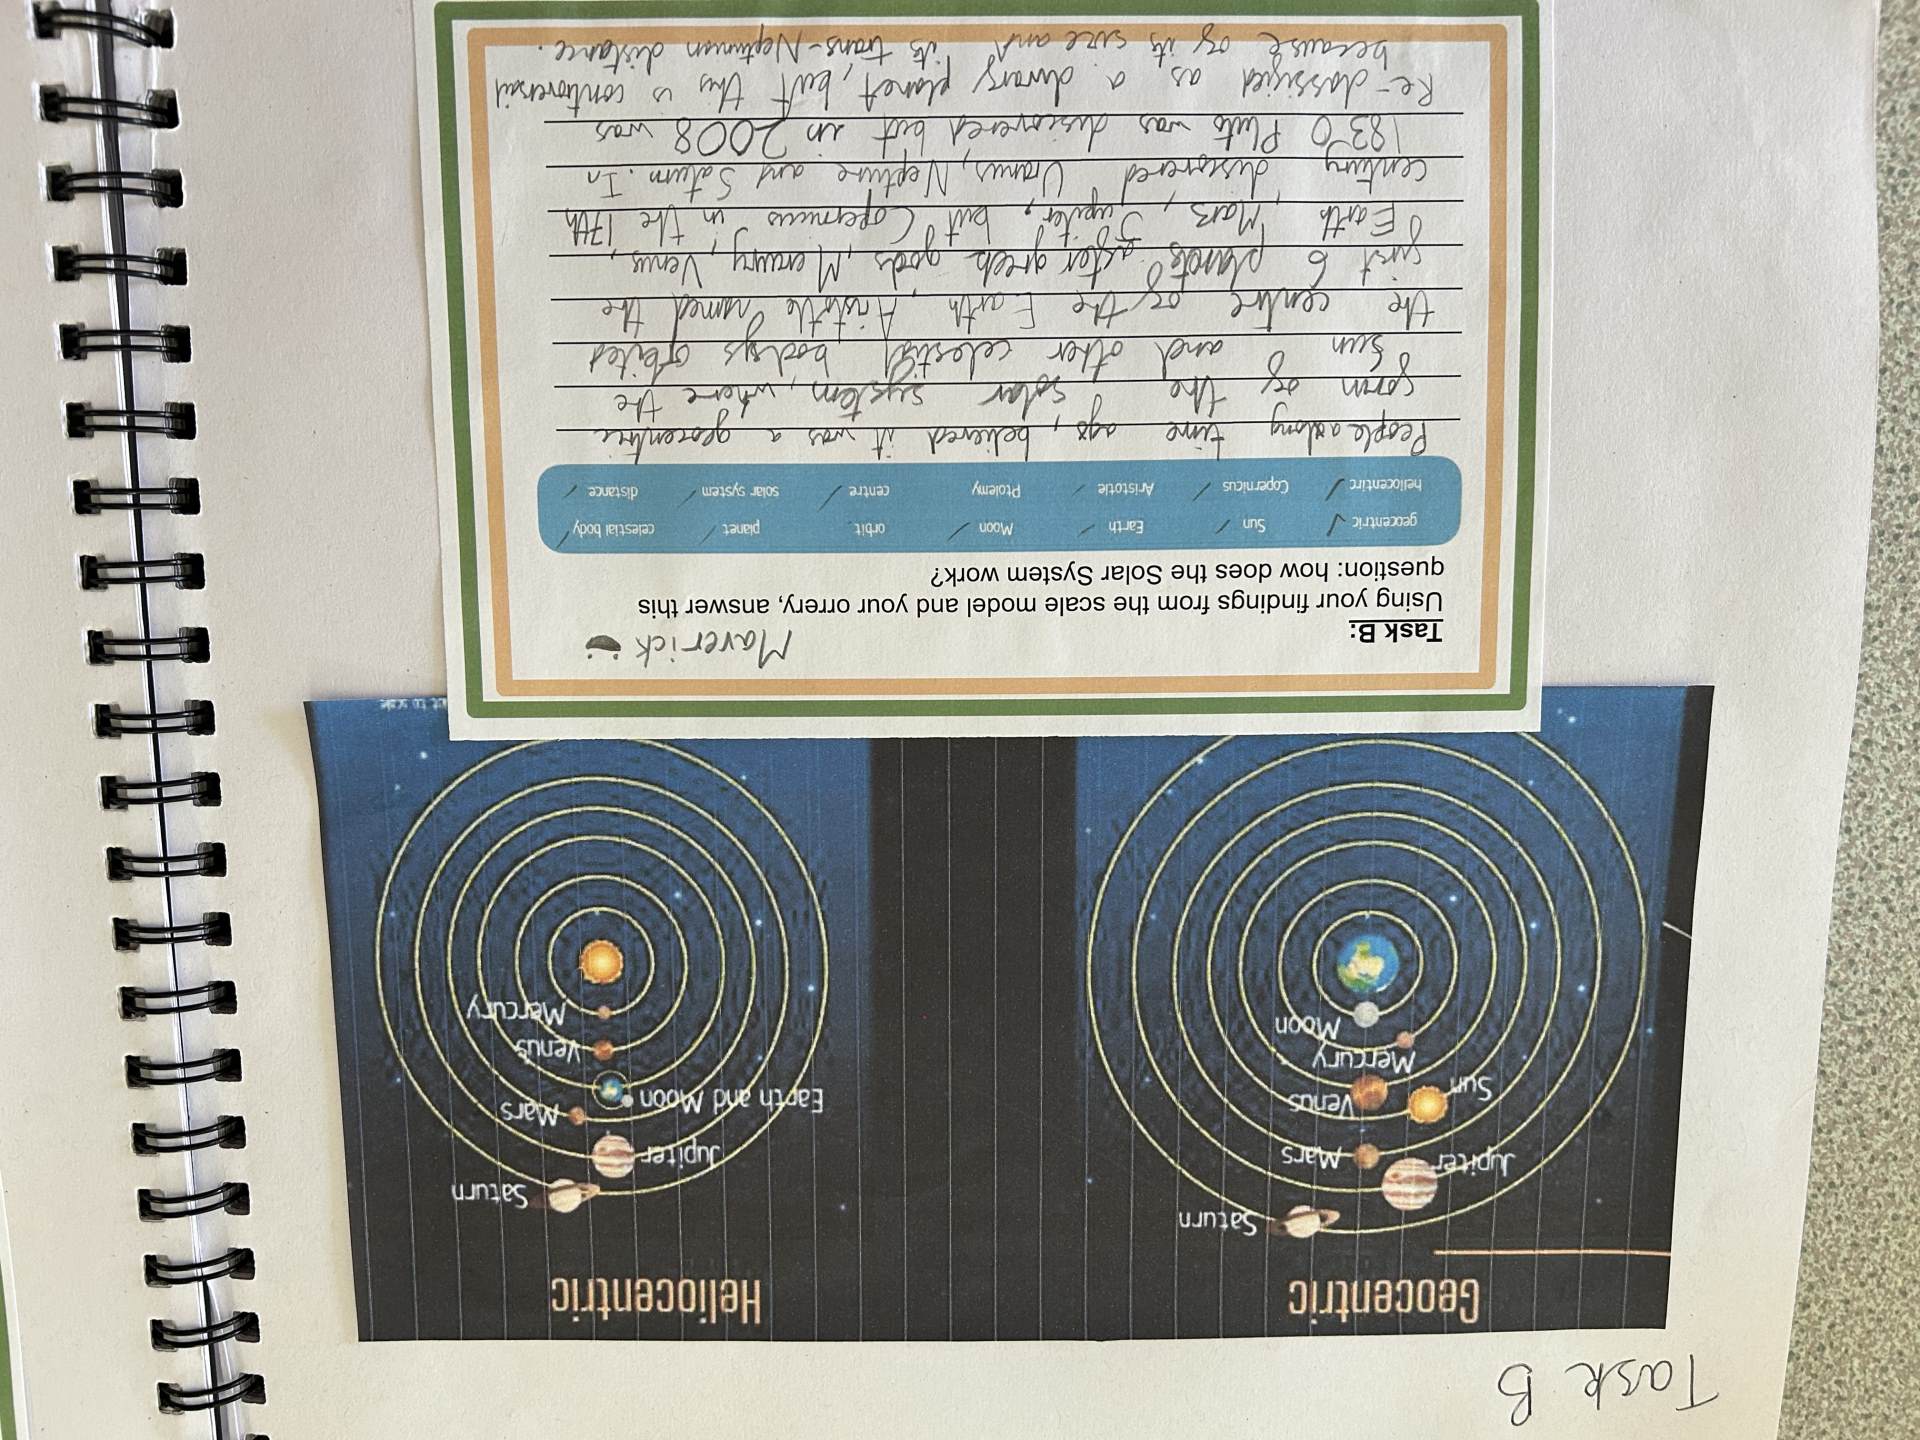 Task B
Geocentric
Heliocentric
Saturn
Jupiter
Mars
Sun
Venus
Mercury
Moon
Saturn
Jupiter
Mars
Earth and Moon
Venus
Mercury
to scale
Task B:
Maverick
Using your findings from the scale model and your orrery, answer this
question: how does the Solar System work?
geocentric ✓ Sun ✓ Earth ✓ Moon ✓ orbit planet ✓ celestial body ✓
heliocentirc ✓ Copernicus ✓ Aristotle ✓ Ptolemy centre ✓ solar system ✓ distance ✓
People a long time ago, believed it was a geocentric
form of the solar system, where the
sun and other celestial bodys orbited
the centre of the Earth, Aristotle named the
first 6 planets after greek gods, Mercury, Venus,
Earth, Mars, Jupiter, but Copernicus in the 17th
century discovered Uranus, Neptune and Saturn. In
1830 Pluto was discovered but in 2008 was
Re-classified as a dwarf planet, but this is controversial
because of its size and its trans-Neptunian distance.